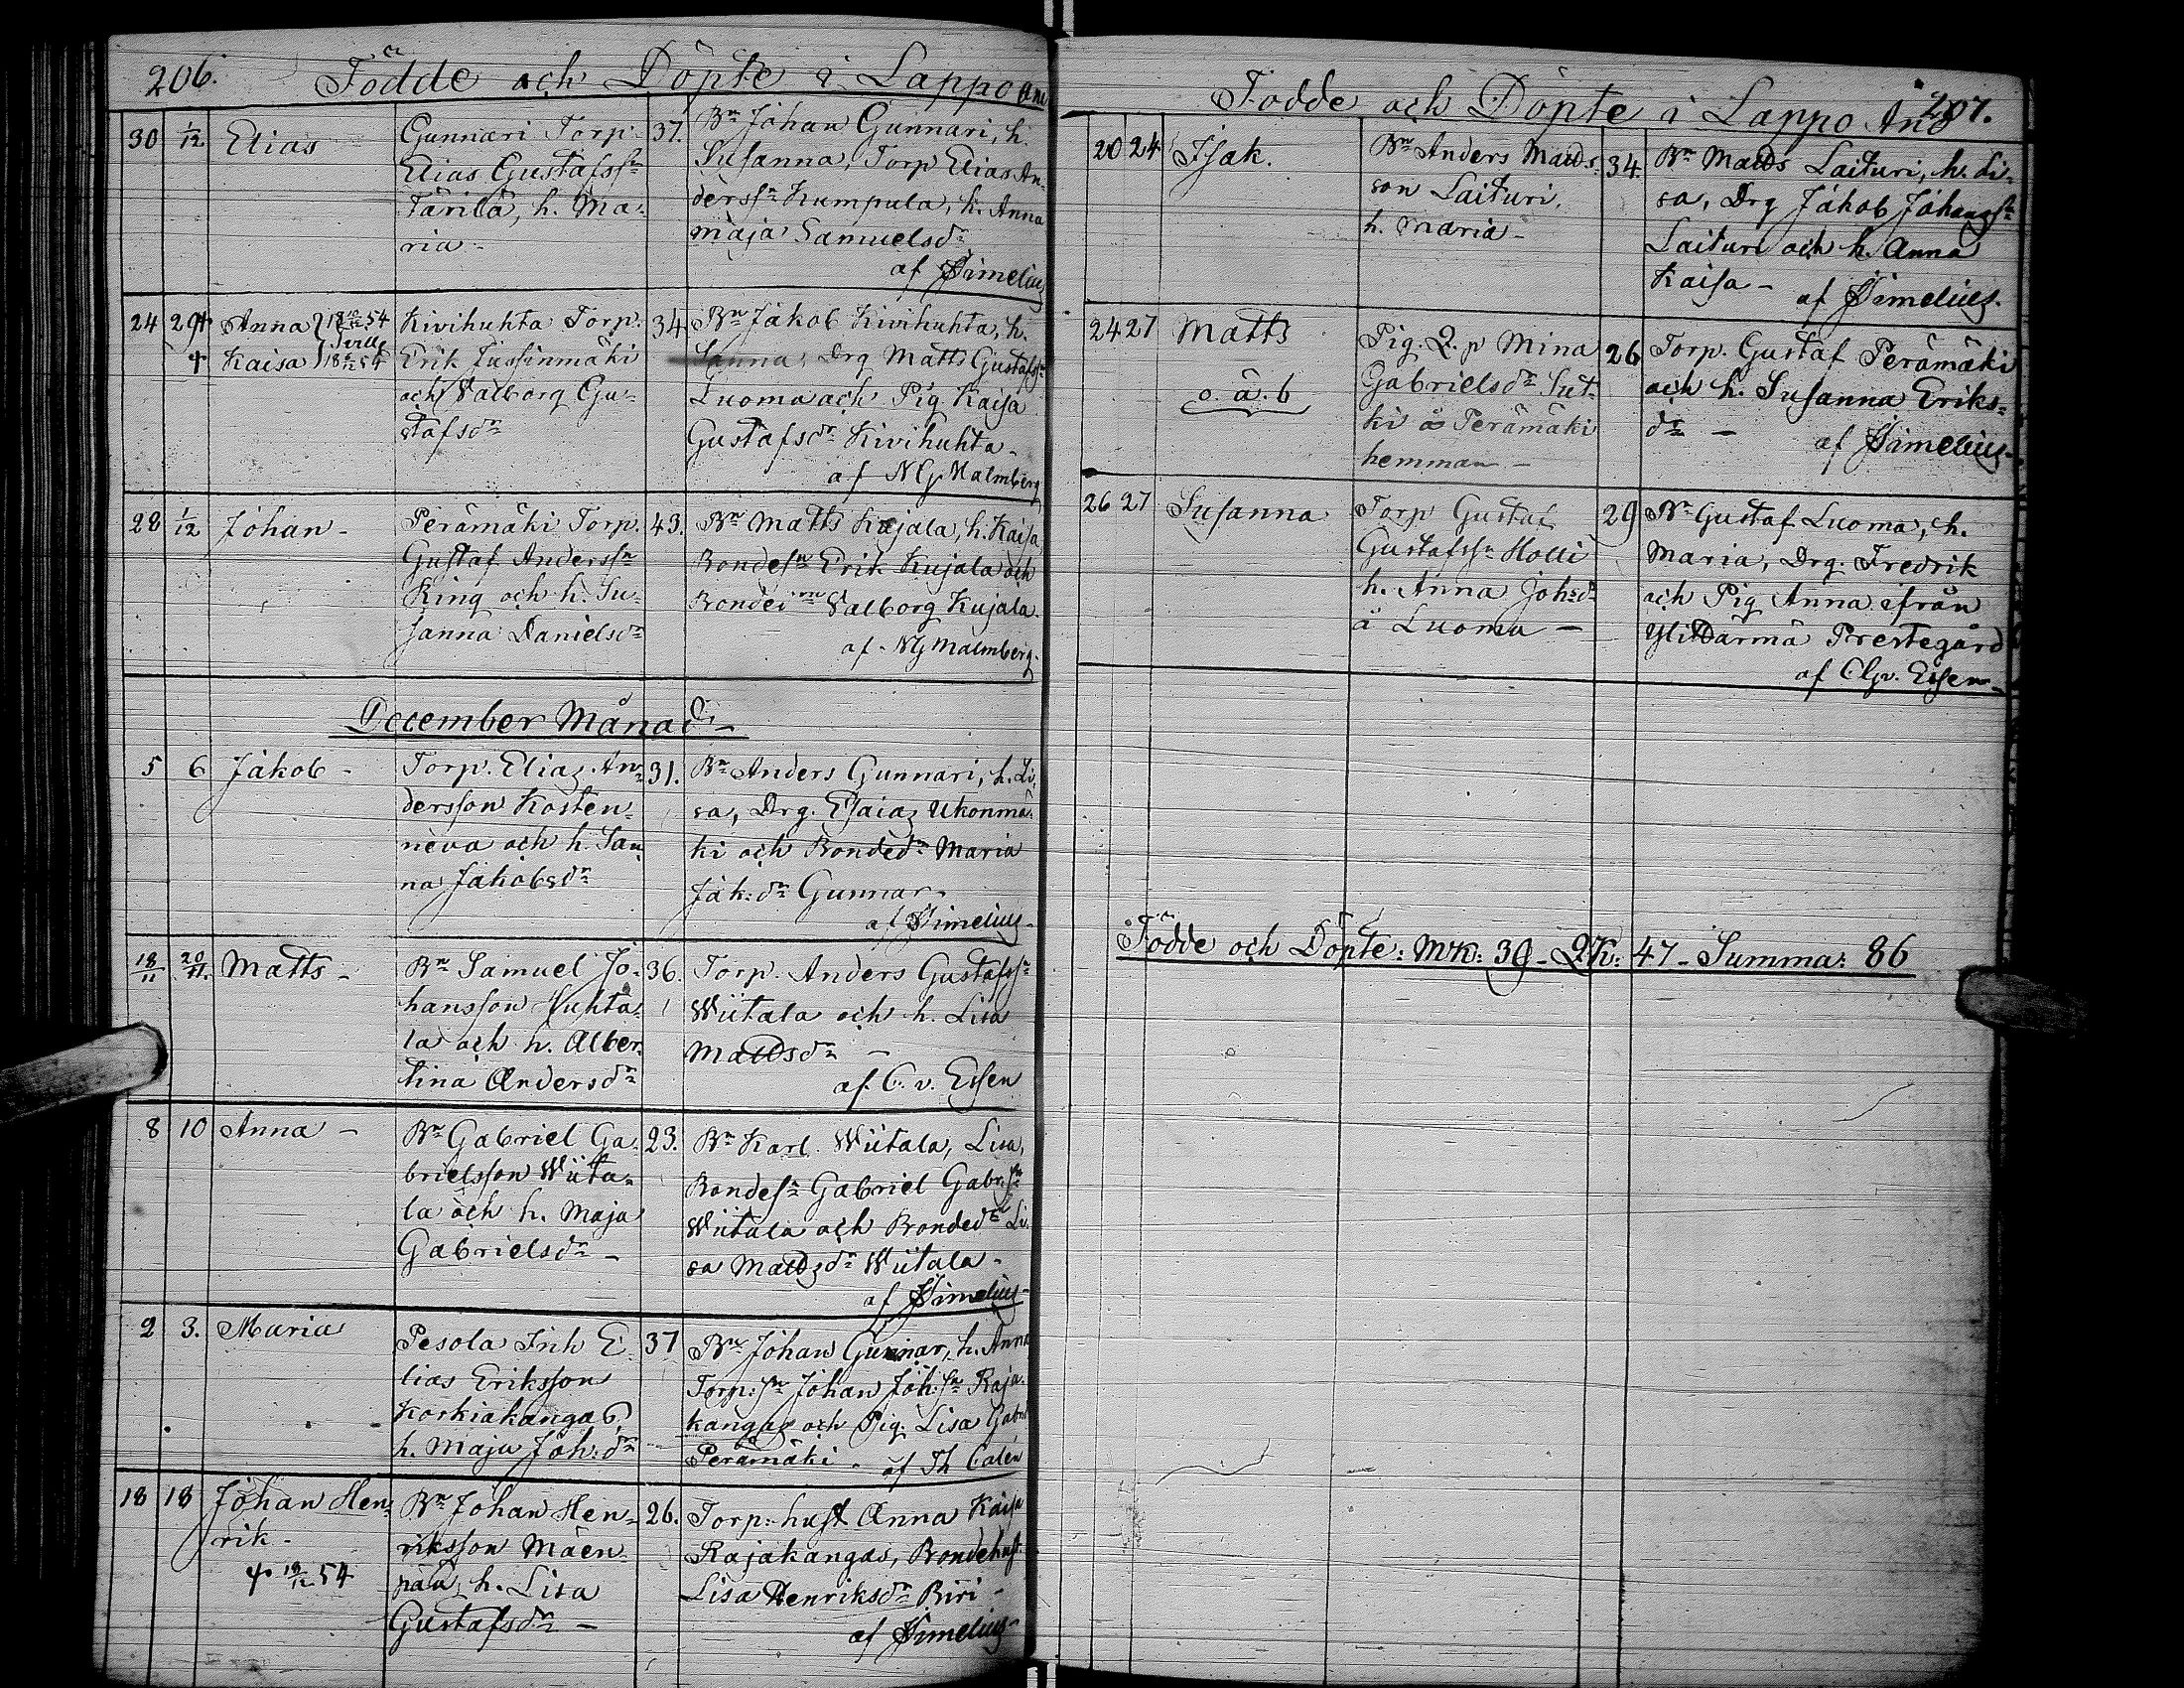 206. Födde och Döpte i Lappo
30 1/12 Elias
Gunnari Torp.
Elias Gustafssn
Tarila, h. Ma-
ria -
37.
Bn Johan Gunnari, h.
Susanna, Torp Elias An-
derssn Kumpula, h. Anna
Maja Samuelsdr
af Simelius
24 29 Anna
Kaisa
Kivihuhta Torp.
Erik Jussinmäki
och Valborg Gu-
stafsdr
34
Bn Jakob Kivihuhta, h.
Sanna, Drg Matts Gustafssn
Luoma och Pig Kaisa
Gustafsdr Kivihuhta -
af NG Malmberg
28 1/12 Johan -
Perämäki Torp.
Gustaf Anderssn
King och h. Su-
sanna Danielsdr
43.
Bn Matts Kujala, h. Kaisa
Bondesn Erik Kujala och
Valborg Kujala.
af. NG Malmberg.
December Månad -
5 6 Jakob -
Torp. Elias An-
dersson Kosten-
neva och h. San
na Jakobsdr
31.
Bn Anders Gunnari, h. Li-
sa, Drg. Esaias Ukonmä-
ki och Bondedr Maria
Jak: dr Gunnar -
af Simelius -
18/11 20/11. Matts -
Bn Samuel Jo-
hansson Huhta-
la och h. Alber-
tina Andersdr
36.
Torp. Anders Gustafssn
Wiitala och h. Lisa
Mattsdr -
af C. v. Essen
8 10 Anna -
Bn Gabriel Ga-
brielsson Wiita-
la och h. Maja
Gabrielsdr -
23.
Bn Karl Wiitala, Lisa,
Bondesn Gabriel Gabr.sn
Wiitala och Bondedr Li-
sa Mattsdr Wiitala -
af Simelius -
2 3. Maria
Pesola Inh E-
lias Eriksson
Korkiakangas,
h. Maja Joh: dr
37
Bn Johan Gunnar, h. Anna
Torp: sn Johan Joh: sn Raja-
kangas och Pig Lisa
Perämäki - af Th Calén
18 18 Johan Hen-
rik -
18/12 54
Bn Johan Hen-
riksson Mäen-
pää, h. Lisa
Gustafsdr -
26.
Torp: hust Anna Kaisa
Rajakangas, Bondehust.
Lisa Henriksdr Biri -
af Simelius -
Födde och Döpte i Lappo Ano 207.
20 24 Isak.
Bn Anders Matts-
son Laituri,
h. Maria -
34.
Bn Matts Laituri, h. Li-
sa, Drg Jakob Johanssn
Laituri och h. Anna
Kaisa - af Simelius.
24 27 Matts
o. ä. b
Pig. Q. p Mina
Gabrielsdr Sut-
ki å Perämäki
hemman -
26
Torp. Gustaf Perämäki
och h. Susanna Eriks-
dr - af Simelius -
26 27 Susanna
Torp Gustaf
Gustafssn Holli
h. Anna Johsdr
å Luoma -
29
Bn Gustaf Luoma, h.
Maria, Drg. Fredrik
och Pig Anna ifrån
Ylihärmä Prestegård
af C G v. Essen -
Födde och Döpte: MK: 39 - QK: 47 - Summa: 86